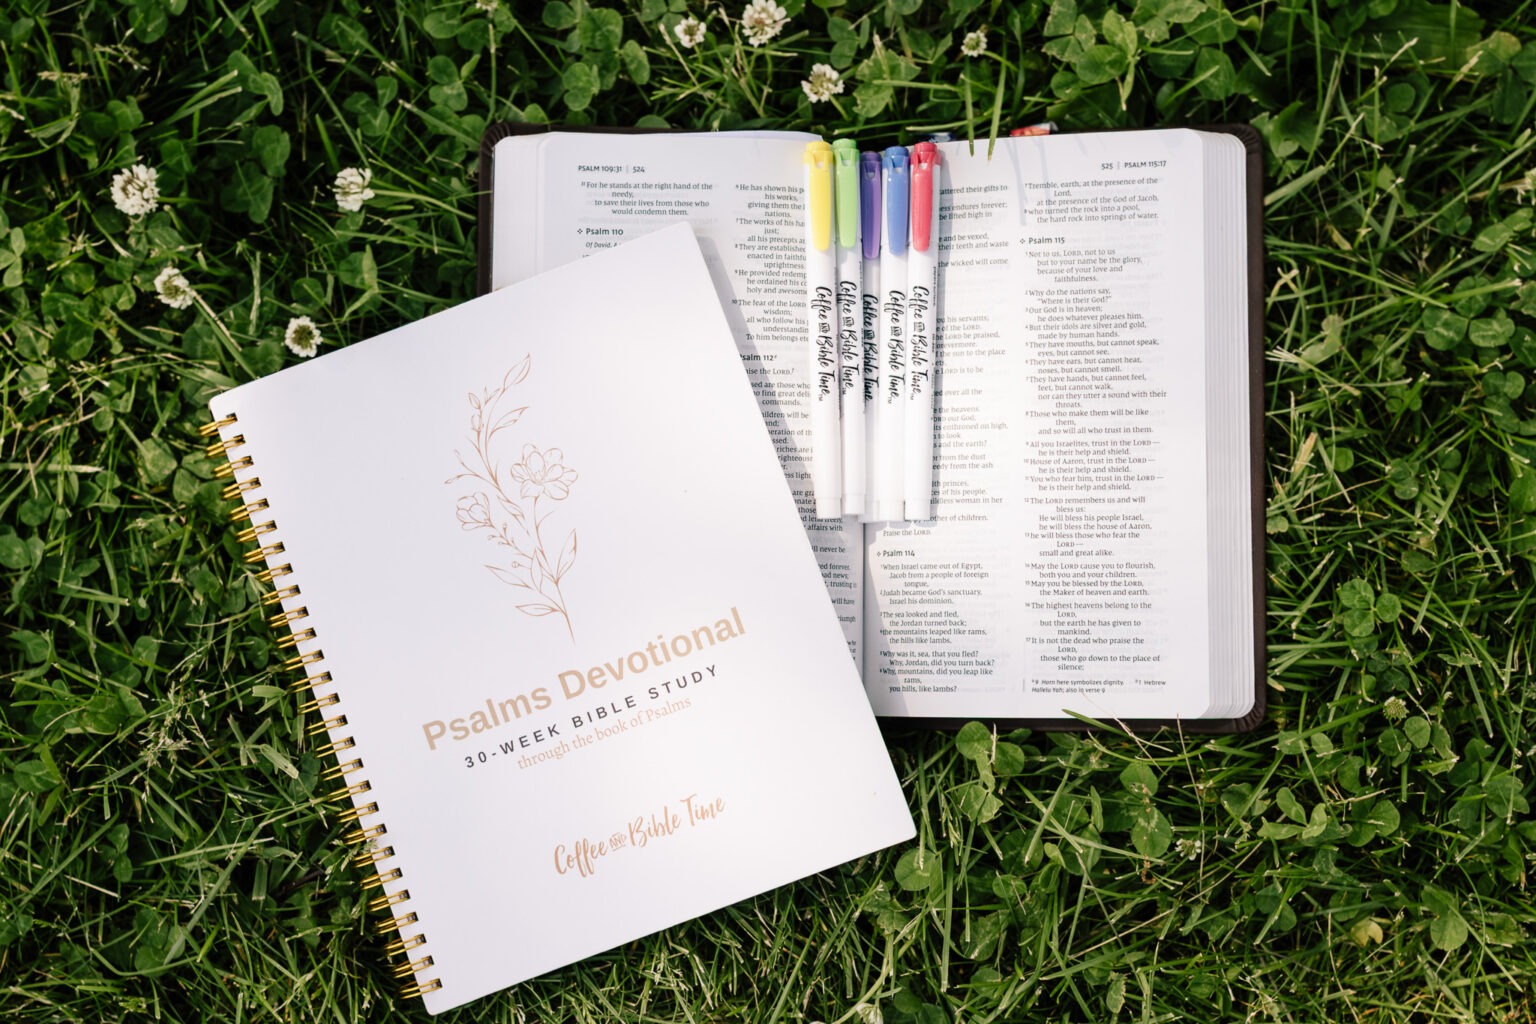 Psalms Devotional
30-WEEK BIBLE STUDY
through the book of Psalms
Coffee AND Bible Time
PSALM 109:31 | 524
31 For he stands at the right hand of the
needy,
to save their lives from those who
would condemn them.
Psalm 110
Of David. A
6 He has shown his
his works,
giving them the
nations.
7 The works of his
just;
all his precepts
8 They are established
enacted in faithfu
uprightness.
9 He provided redemp
he ordained his co
holy and awesome
10 The fear of the LORD
wisdom;
all who follow his
understanding
To him belongs
Psalm 112
Coffee AND Bible Time
Coffee AND Bible Time
Coffee AND Bible Time
Coffee AND Bible Time
Coffee AND Bible Time
attered their gifts to
endures forever;
be lifted high in
and be vexed,
their teeth and waste
the wicked will come
his servants;
of the LORD.
be praised,
the sun to the place
LORD is to be
over all the
the heavens.
our God,
enthroned on high,
to look
and the earth?
from the dust
from the ash
princes,
of his people.
woman in her
mother of children.
Praise the LORD.
Psalm 114
1 When Israel came out of Egypt,
Jacob from a people of foreign
tongue,
2 Judah became God's sanctuary,
Israel his dominion.
3 The sea looked and fled,
the Jordan turned back;
4 the mountains leaped like rams,
the hills like lambs.
5 Why was it, sea, that you fled?
Why, Jordan, did you turn back?
6 Why, mountains, did you leap like
rams,
you hills, like lambs?
525 | PSALM 115:17
7 Tremble, earth, at the presence of the
Lord,
at the presence of the God of Jacob,
8 who turned the rock into a pool,
the hard rock into springs of water.
Psalm 115
1 Not to us, LORD, not to us
but to your name be the glory,
because of your love and
faithfulness.
2 Why do the nations say,
"Where is their God?"
3 Our God is in heaven;
he does whatever pleases him.
4 But their idols are silver and gold,
made by human hands.
5 They have mouths, but cannot speak,
eyes, but cannot see.
6 They have ears, but cannot hear,
noses, but cannot smell.
7 They have hands, but cannot feel,
feet, but cannot walk,
nor can they utter a sound with their
throats.
8 Those who make them will be like
them,
and so will all who trust in them.
9 All you Israelites, trust in the LORD—
he is their help and shield.
10 House of Aaron, trust in the LORD—
he is their help and shield.
11 You who fear him, trust in the LORD—
he is their help and shield.
12 The LORD remembers us and will
bless us:
He will bless his people Israel,
he will bless the house of Aaron,
13 he will bless those who fear the
LORD—
small and great alike.
14 May the LORD cause you to flourish,
both you and your children.
15 May you be blessed by the LORD,
the Maker of heaven and earth.
16 The highest heavens belong to the
LORD,
but the earth he has given to
mankind.
17 It is not the dead who praise the
LORD,
those who go down to the place of
silence;
a 9 Horn here symbolizes dignity. b 1 Hebrew
Hallelu Yah; also in verse 9